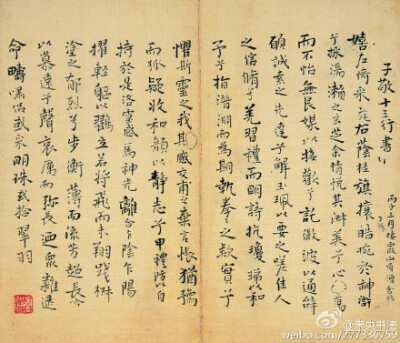 子敬十三行書
嬉左倚采旄右蔭桂旗攘皓捥於神滸
兮採湍瀨之玄芝余情悅其淑美兮心
而不怡無良媒以接歡兮託微波以通辭
願誠素之先達兮解玉珮以要之嗟佳人
之信脩兮羌習禮而明詩抗瓊珶以和
予兮指潛淵而為期執拳之款實兮
懼斯靈之我欺感交甫之棄言悵猶豫
而狐疑收和顏以靜志兮申禮防以自
持於是洛靈感焉神光離合乍陰乍陽
擢輕軀以鶴立若將飛而未翔踐椒
塗之郁烈兮步衡薄而流芳超長吟
以慕遠兮聲哀厲而弥長迺眾雜遝
命疇嘯侶或采明珠或拾翠羽
@未央书法
weibo.com/277336759